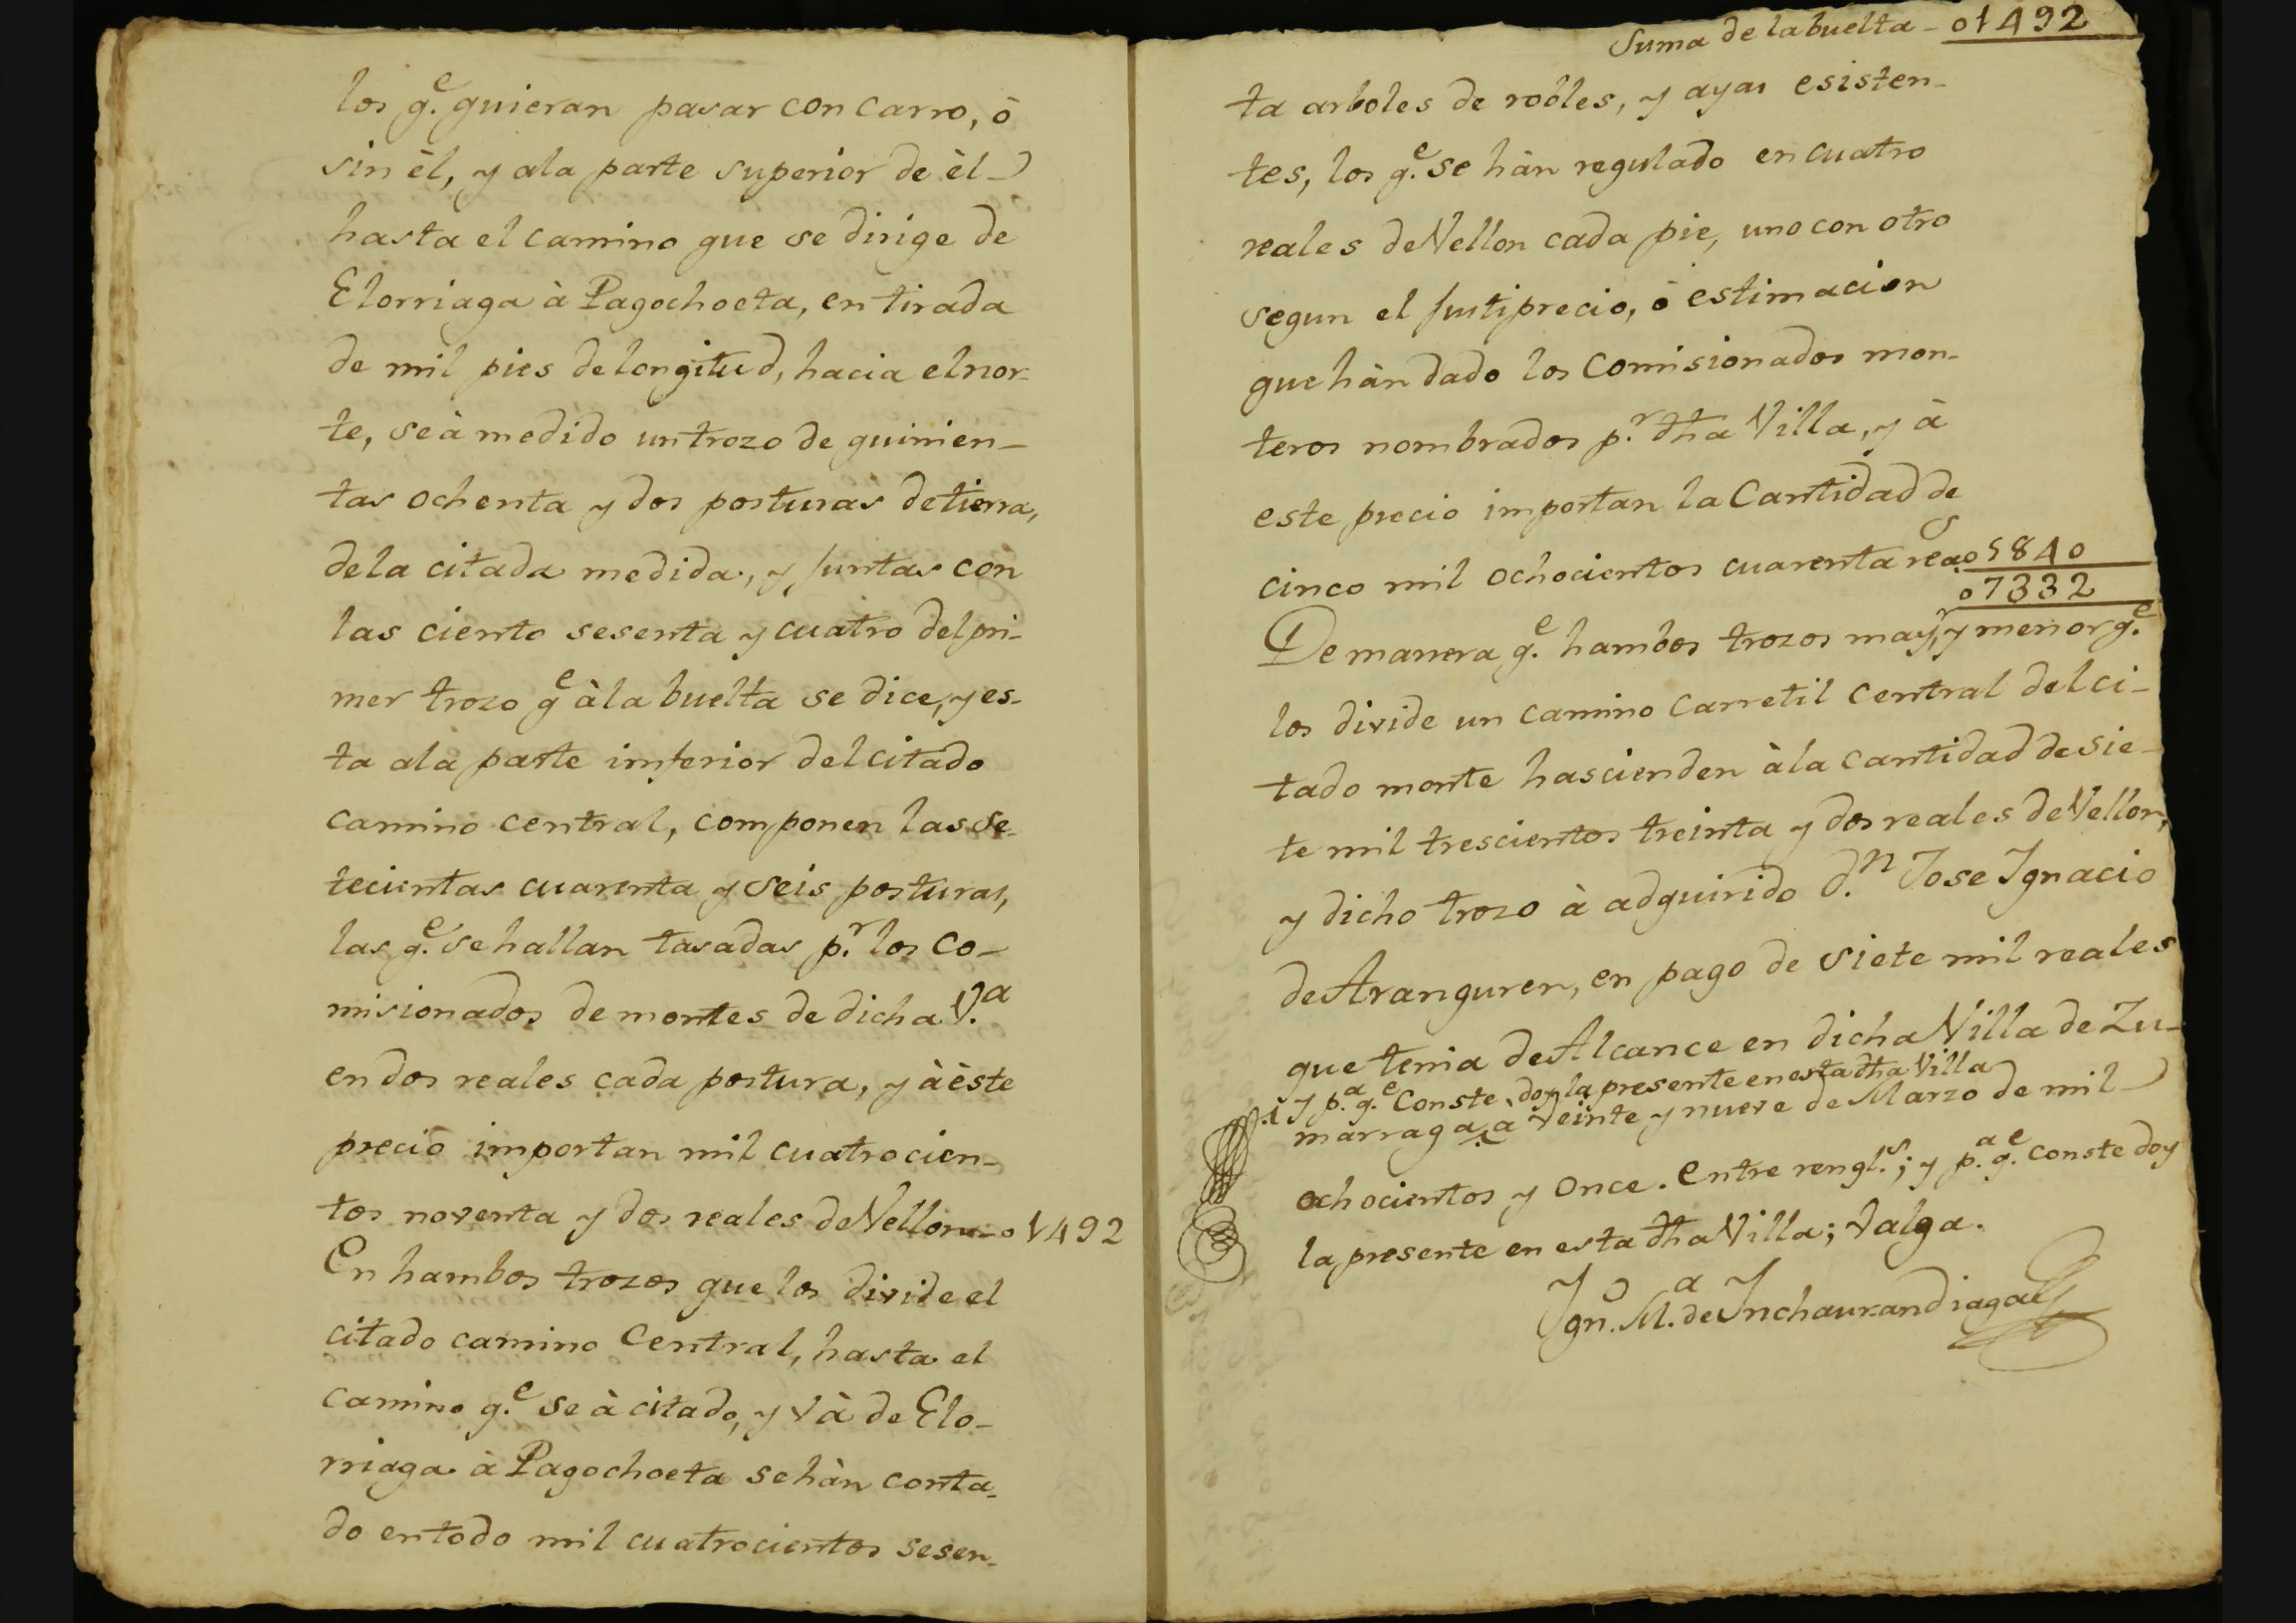 los q.e quieran pasar con carro, ò
sin èl, y ala parte superior de èl
hasta el camino que se dirige de
Elorriaga à Pagochoeta, en tirada
de mil pies de longitud, hacia el nor-
te, se à medido un trozo de quinien-
tas ochenta y dos posturas de tierra,
de la citada medida, y Juntas con
las ciento sesenta y cuatro del pri-
mer trozo q.e à la buelta se dice, y es-
ta ala parte imferior del citado
camino central, componen las se-
tecientas cuarenta y seis posturas,
las q.e se hallan tasadas p.r los co-
misionados de montes de dicha V.a
en dos reales cada postura, y à èste
precio importan mil cuatrocien-
tos noventa y dos reales de Vellon - 01492
En hambos trozos que los divide el
citado camino Central, hasta el
camino q.e se à citado, y và de Elo-
rriaga à Pagochoeta se hàn conta-
do en todo mil cuatrocientos sesen-
Suma de la buelta - 01492
ta arboles de robles, y ayas esisten-
tes, los q.e se hàn regulado en cuatro
reales de Vellon cada pie, uno con otro
segun el Justiprecio, ò estimacion
que hàn dado los Comisionados mon-
teros nombrados p.r dha Villa, y à
este precio importan la Cantidad de
cinco mil ochocientos cuarenta rea.s 05840
07332
De manera q.e hambos trozos may.r, y menor q.e
los divide un camino Carretil Central del ci-
tado monte hascienden à la cantidad de sie-
te mil trescientos treinta y dos reales de Vellon,
y dicho trozo à adquirido D.n Jose Ygnacio
de Aranguren, en pago de siete mil reales
que tenia de Alcance en dicha Villa de Zu-
y p.a q.e Conste, doy la presente en esta dha Villa
marraga à Veinte y nueve de Marzo de mil
ochocientos y once. Entre rengl.s; y p.a q.e conste doy
la presente en esta dha Villa; Valga.
Ygn.o M.a de Ynchaurandiaga